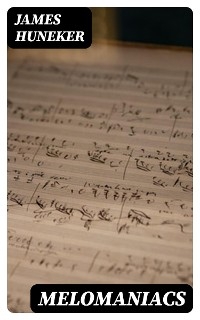 JAMES
HUNEKER
MELOMANIACS